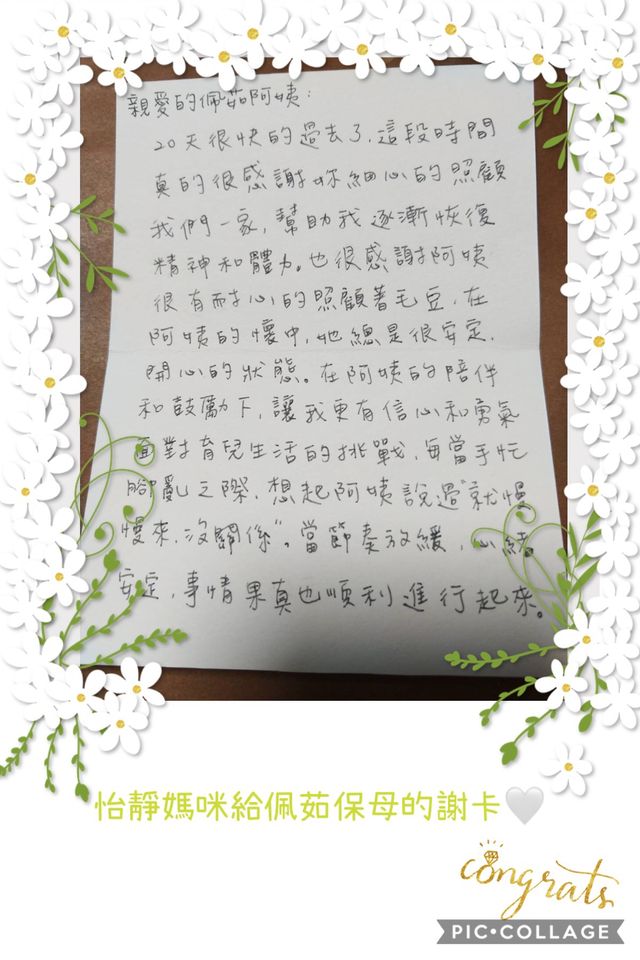 親愛的佩茹阿姨：
20天很快的過去了，這段時間
真的很感謝妳細心的照顧
我們一家，幫助我逐漸恢復
精神和體力。也很感謝阿姨
很有耐心的照顧著毛豆，在
阿姨的懷中，他總是很安定，
開心的狀態。在阿姨的陪伴
和鼓勵下，讓我更有信心和勇氣
面對育兒生活的挑戰，每當手忙
腳亂之際，想起阿姨說過"就慢
慢來，沒關係"。當節奏放緩，心緒
安定，事情果真也順利進行起來。
怡靜媽咪給佩茹保母的謝卡🤍
congrats
PIC•COLLAGE